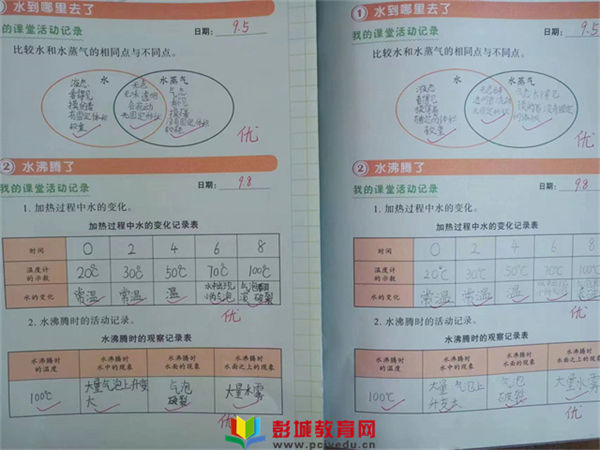 水到哪里去了
我的课堂活动记录
日期: 9.5
比较水和水蒸气的相同点与不同点。
水
水蒸气
液态
看得见
摸的着
有固定体积
较重
无色
无味 透明
会流动
无固定形状
气态
看不见
摸不着
没有固定体积
较轻
优
② 水沸腾了
我的课堂活动记录
日期: 9.8
1. 加热过程中水的变化。
加热过程中水的变化记录表
时间 0 2 4 6 8
温度计的示数 20℃ 30℃ 50℃ 70℃ 100℃
水的变化 常温 常温 温 水中出现小气泡 气泡翻滚 破裂
优
2. 水沸腾时的活动记录。
水沸腾时的观察记录表
水沸腾时的温度 水沸腾时水中的现象 水沸腾时水面的现象 水沸腾时水面之上的现象
100℃ 大量气泡上升变大 气泡破裂 大量水雾
优
① 水到哪里去了
我的课堂活动记录
日期: 9.5
比较水和水蒸气的相同点与不同点。
水
水蒸气
液态
看得见
摸得着
较重
优
② 水沸腾了
我的课堂活动记录
日期: 9.8
1. 加热过程中水的变化。
加热过程中水的变化记录表
时间 0 2 4 6 8
温度计的示数 20℃ 30℃ 50℃ 70℃ 100℃
水的变化 常温 常温 温
优
2. 水沸腾时的活动记录。
水沸腾时的观察记录表
水沸腾时的温度 水沸腾时水中的现象 水沸腾时水面的现象 水沸腾时水面之上的现象
100℃ 大量气泡上升变大 气泡破裂 大量水雾
优
彭城教育网
www.pcjyedu.cn